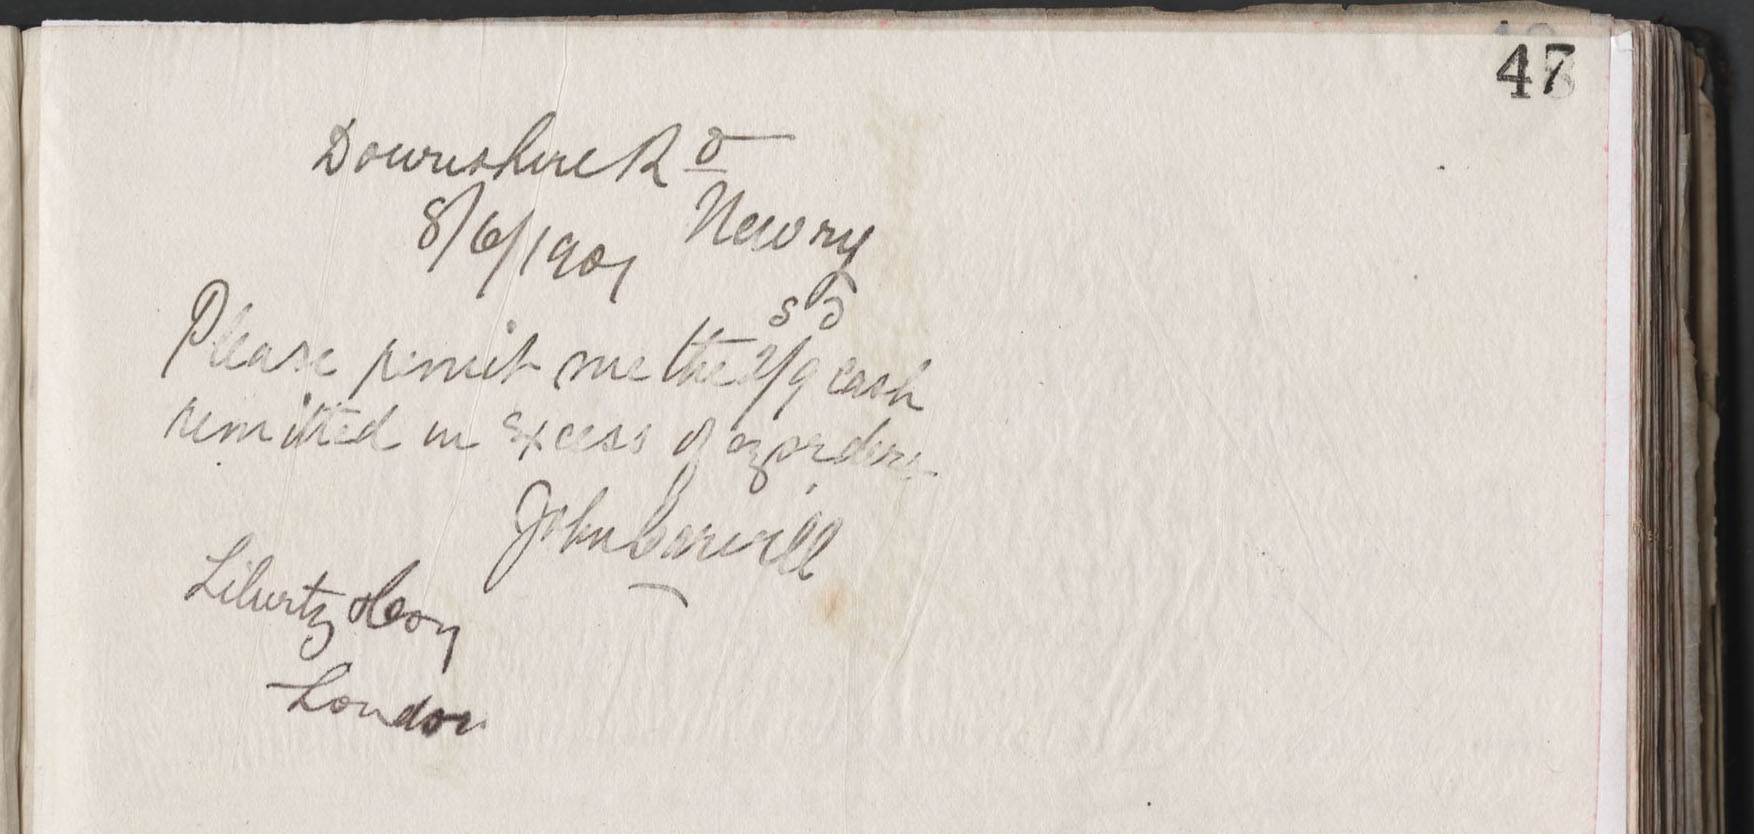 47
Downshire Rd
8/6/1901 Newry
s d
Please remit me the 2/9 cash
remitted in excess of my order
John Carvill
Liberty & Coy
London